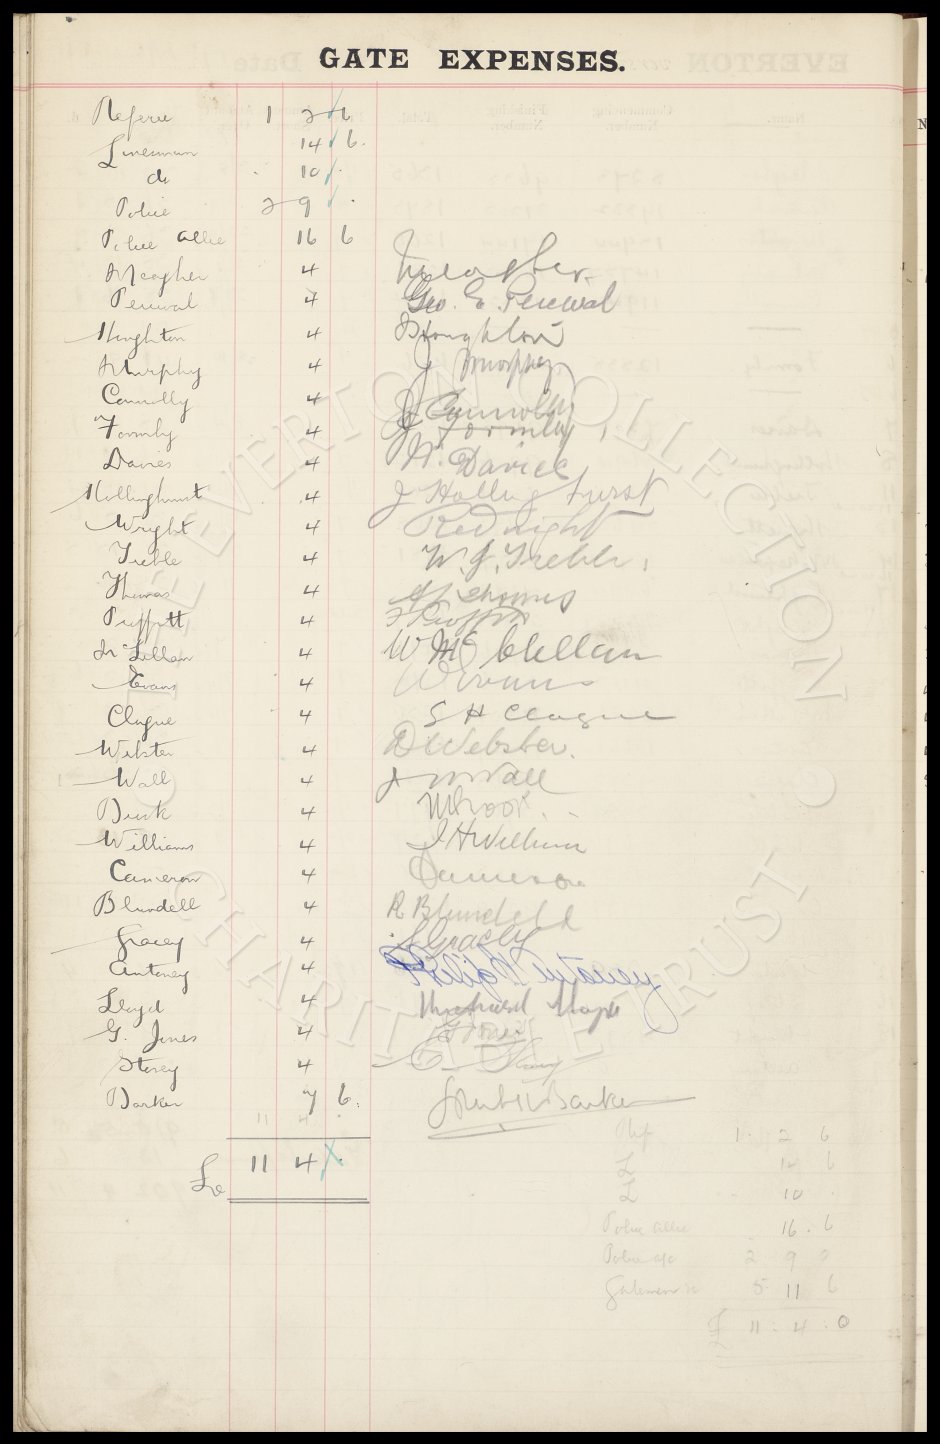 GATE EXPENSES.
Referee 1 2 6
Linesman 14 6.
do 10
Police 2 9 .
Police Allce 16 6
Meagher 4 Meagher
Percival 4 Geo. E. Percival
Houghton 4 Houghton
Murphy 4 J Murphy
Connolly 4 J Connolly
Formby 4 J Formby
Davies 4 W. Davies
Hollinghurst 4 J Hollinghurst
Wright 4
Treble 4 W. J. Treble
Thomas 4 Thomas
Proffitt 4
McLellan 4 W McClellan
Evans 4 W Evans
Clague 4 S H Clague
Webster 4 D Webster.
Wall 4 J W Wall
4
Williams 4 J H William
Cameron 4 Cameron
Blundell 4 R Blundell
Gracey 4 J Gracey
Antoney 4 Philip Antoney
Lloyd 4
G. Jones 4 G Jones
Storey 4
Barker 7 6. Barker
11 4 .
£ 11 4 .
Ref 1 2 6
L 14 6
L 10
Police Allce 16 . 6
Police a/c 2 9 0
Gatemen 5 11 6
£ 11 : 4 : 0
THE EVERTON COLLECTION
CHARITABLE TRUST